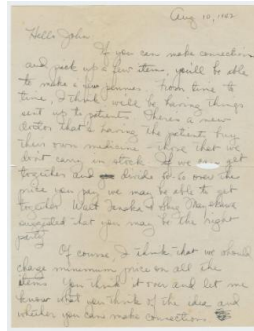 Aug 10, 1952
Hello John,
If you can make connections
and pick up a few items, you'll be able
to make a few pennies. From time to
time, I think we'll be having things
sent up to patients. There's a new
doctor that's having the patients buy
their own medicine - those that we
don't carry in stock. If we can get
together and divide 50 % over the
price you pay, we may be able to get
together. West I spoke They above
suggested that you may be the right
party.
Of course, I think that we should
charge minimum price on all the
items. You think it over and let me
know what you think of the idea and
whether you can make connections.